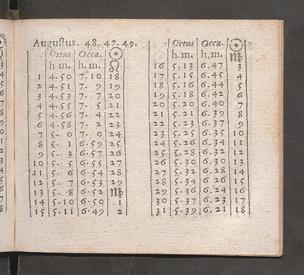 Augustus. 48. 47. 49.
Ortus Occa. ☉
h. m. h. m. ♌
1 4.50 7.10 18
2 4.51 7. 9 19
3 4.53 7. 7 20
4 4.55 7. 5 21
5 4.56 7. 4 22
6 4.58 7. 2 23
7 5. 0 7. 0 24
8 5. 1 6.59 25
9 5. 3 6.57 26
10 5. 5 6.55 27
11 5. 6 6.54 28
12 5. 7 6.53 29
13 5. 8 6.52 ♍
14 5.10 6.50 1
15 5.11 6.49 2
Ortus Occa. ☉
h. m. h. m. ♍
16 5.13 6.47 3
17 5.15 6.45 4
18 5.16 6.44 5
19 5.18 6.42 6
20 5.20 6.40 7
21 5.21 6.39 8
22 5.23 6.37 9
23 5.25 6.35 10
24 5.26 6.34 11
25 5.28 6.32 12
26 5.30 6.30 13
27 5.32 6.28 14
28 5.34 6.26 15
29 5.36 6.24 16
30 5.37 6.23 17
31 5.39 6.21 18